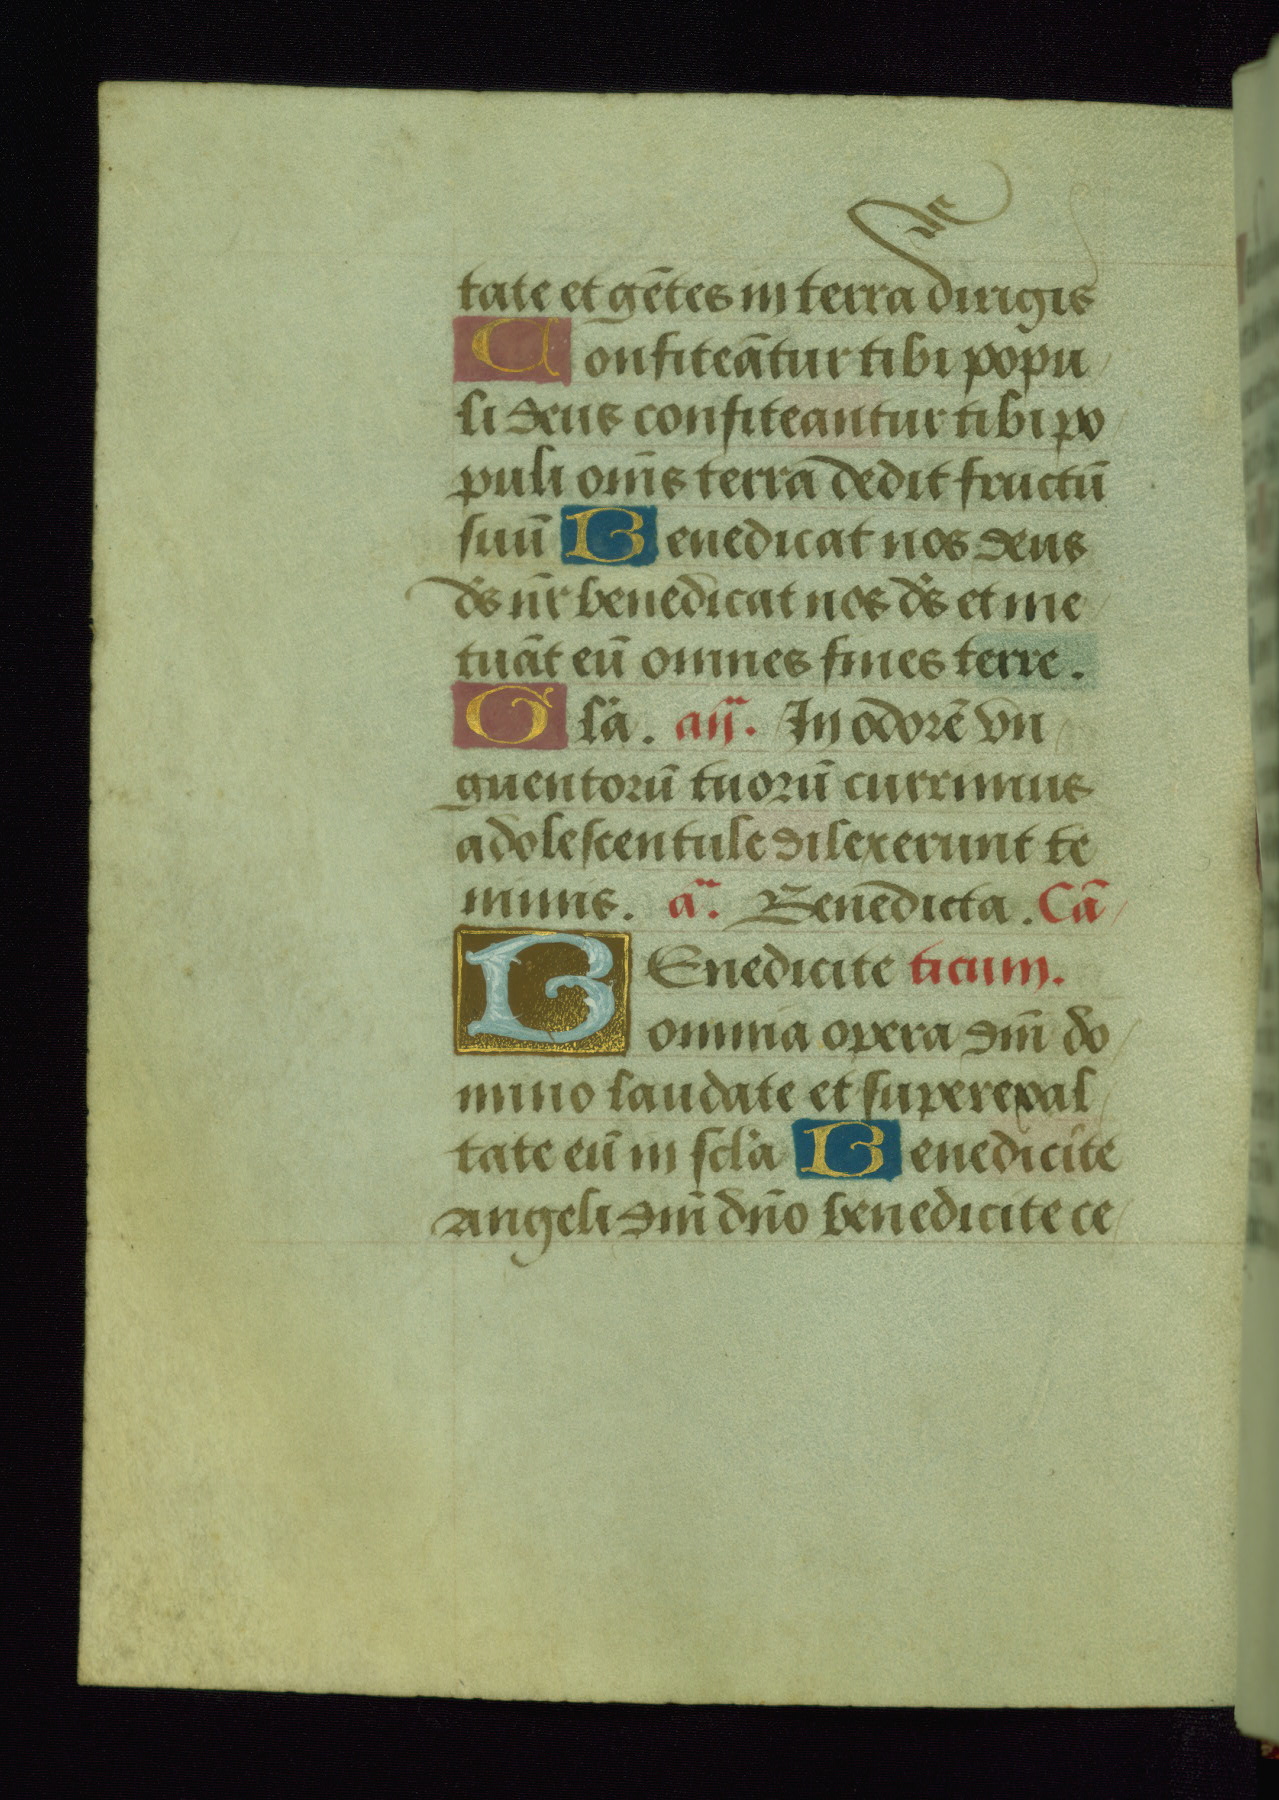 tate et gētes in terra dirigis
Confiteātur tibi popu
li deus confiteantur tibi po
puli om̄s terra dedit fructū
suū Benedicat nos deus
ds̄ nr̄ benedicat nos ds̄ et me
tuāt eū omnes fines terre.
Glā. an̄. In odorē vn
guentorū tuorū currimus
adolescentule dilexerunt te
nimis. ā. Benedicta. Cā
Benedicite ticum.
omnia opera dn̄i do
mino laudate et superexal
tate eū in sclā Benedicite
angeli dn̄i dn̄o benedicite ce